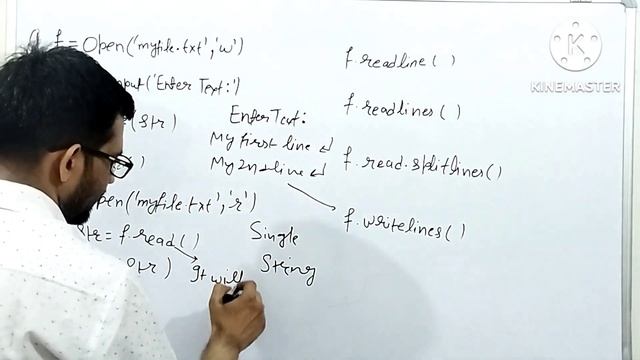 f = Open('myfile.txt','w')
put('Enter Text:')
(str)
)
pen('myfile.txt','r')
str = f.read()
str)
Enter Text:
My first line ↵
My 2nd line ↵
Single
String
It will
f.readline( )
f.readlines( )
f.read.splitlines( )
f.writelines( )
KINEMASTER